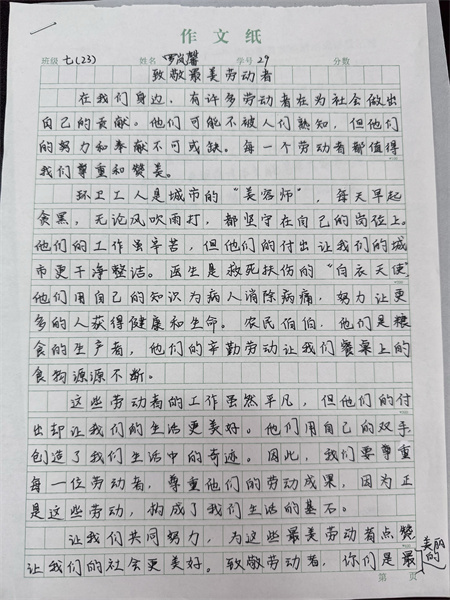 作文纸
班级 七(23) 姓名 罗岚馨 学号 29 分数
致敬最美劳动者
在我们身边，有许多劳动者在为社会做出
自己的贡献。他们可能不被人们熟知，但他们
的努力和奉献不可或缺。每一个劳动者都值得
我们尊重和赞美。
环卫工人是城市的“美容师”，每天早起
贪黑，无论风吹雨打，都坚守在自己的岗位上。
他们的工作虽辛苦，但他们的付出让我们的城
市更干净整洁。医生是救死扶伤的“白衣天使”
他们用自己的知识为病人消除病痛，努力让更
多的人获得健康和生命。农民伯伯，他们是粮
食的生产者，他们的辛勤劳动让我们餐桌上的
食物源源不断。
这些劳动者的工作虽然平凡，但他们的付
出却让我们的生活更美好。他们用自己的双手
创造了我们生活中的奇迹。因此，我们要尊重
每一位劳动者，尊重他们的劳动成果，因为正
是这些劳动，构成了我们生活的基石。
让我们共同努力，为这些最美劳动者点赞
让我们的社会更美好。致敬劳动者，你们是最
美丽
的
第 页